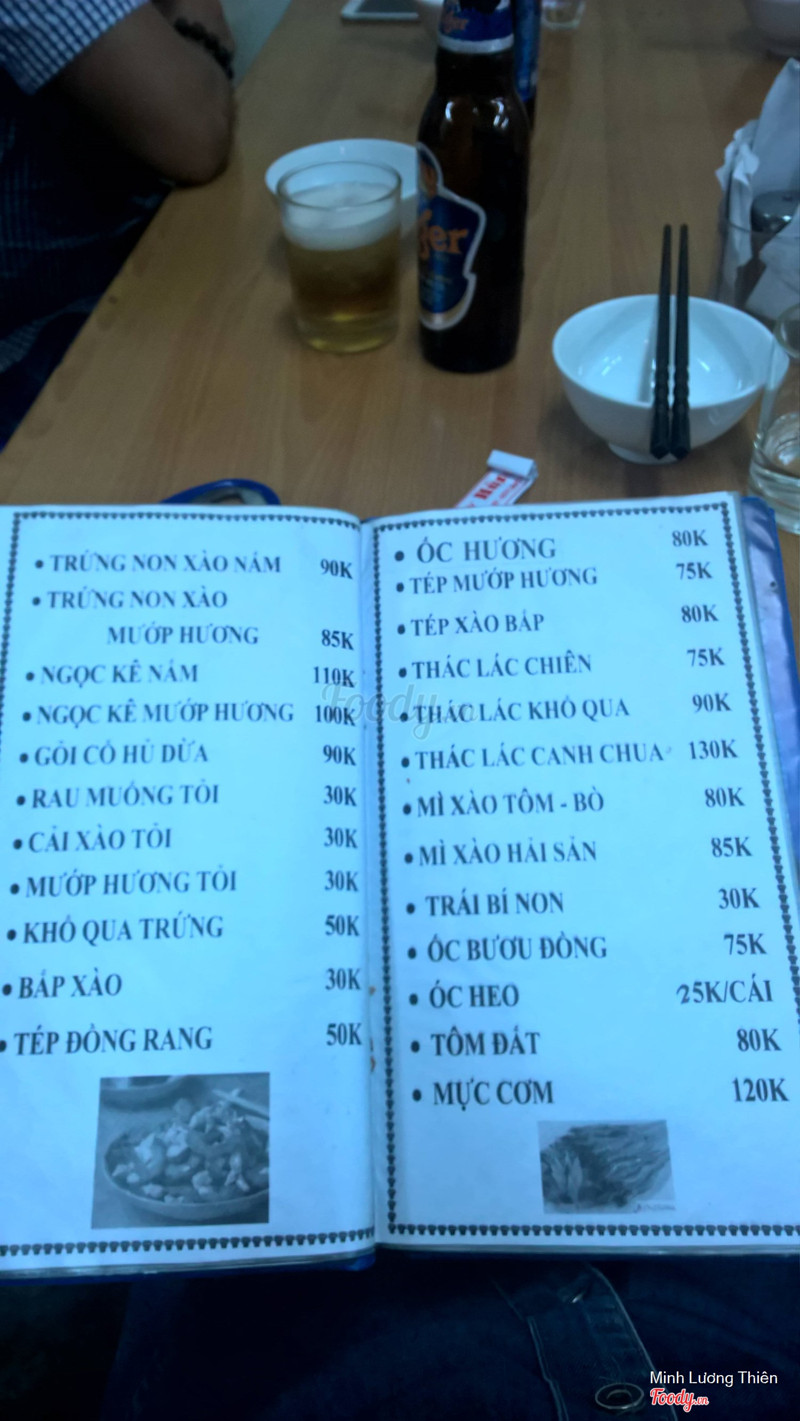 Tiger
ger
• TRỨNG NON XÀO NẤM 90K
• TRỨNG NON XÀO
MƯỚP HƯƠNG 85K
• NGỌC KÊ NẤM 110K
• NGỌC KÊ MƯỚP HƯƠNG 100K
• GỎI CỔ HỦ DỪA 90K
• RAU MUỐNG TỎI 30K
• CẢI XÀO TỎI 30K
• MƯỚP HƯƠNG TỎI 30K
• KHỔ QUA TRỨNG 50K
• BẮP XÀO 30K
• TÉP ĐỒNG RANG 50K
• ỐC HƯƠNG 80K
• TÉP MƯỚP HƯƠNG 75K
• TÉP XÀO BẮP 80K
• THÁC LÁC CHIÊN 75K
• THÁC LÁC KHỔ QUA 90K
• THÁC LÁC CANH CHUA 130K
• MÌ XÀO TÔM - BÒ 80K
• MÌ XÀO HẢI SẢN 85K
• TRÁI BÍ NON 30K
• ỐC BƯƠU ĐỒNG 75K
• ÓC HEO 25K/CÁI
• TÔM ĐẤT 80K
• MỰC CƠM 120K
Foody.vn
Minh Lương Thiên
Foody.vn